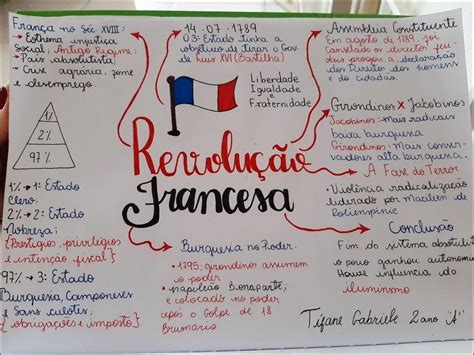 França no Séc XVIII:
→ Extrema injustiça
Social; Antigo Regime;
→ País absolutista;
→ Crise agrária, fome
e desemprego
1%
2%
97%
1% → 1: Estado
Clero;
2% → 2: Estado
Nobreza;
{Prestígios, privilégios
e intenção fiscal}
97% → 3: Estado
Burguesia, Camponeses
e Sans culotes;
{obrigações e imposto}
14.07.1789
O 3: Estado tinha o
objetivo de tirar o Gov.
de Luis XVI (Bastilha)
Liberdade
Igualdade e
Fraternidade
Revolução
Francesa
Burguesia no Poder.
• 1795; girondinos assumem
o poder
• napoleão Bonaparte;
e colocado no poder
após o Golpe de 18
Brumário
Assembleia Constituente
Em agosto de 1789, foi
Cancelado os direitos feu-
dais
a declaração
dos Direitos dos homens
e do cidadão.
Girondinos X Jacobinos
Jacobinos: Mais radicais
baixa burguesia
Girondinos: Mais conser-
vadores alta burguesia
A Fase do Terror
• Violência radicalizada
liderado por
Robespierre
Conclusão
Fim do sistema absolutista
o povo ganhou autonomia
Houve influencia do
iluminismo
Tifane Gabriele 2 ano "A"